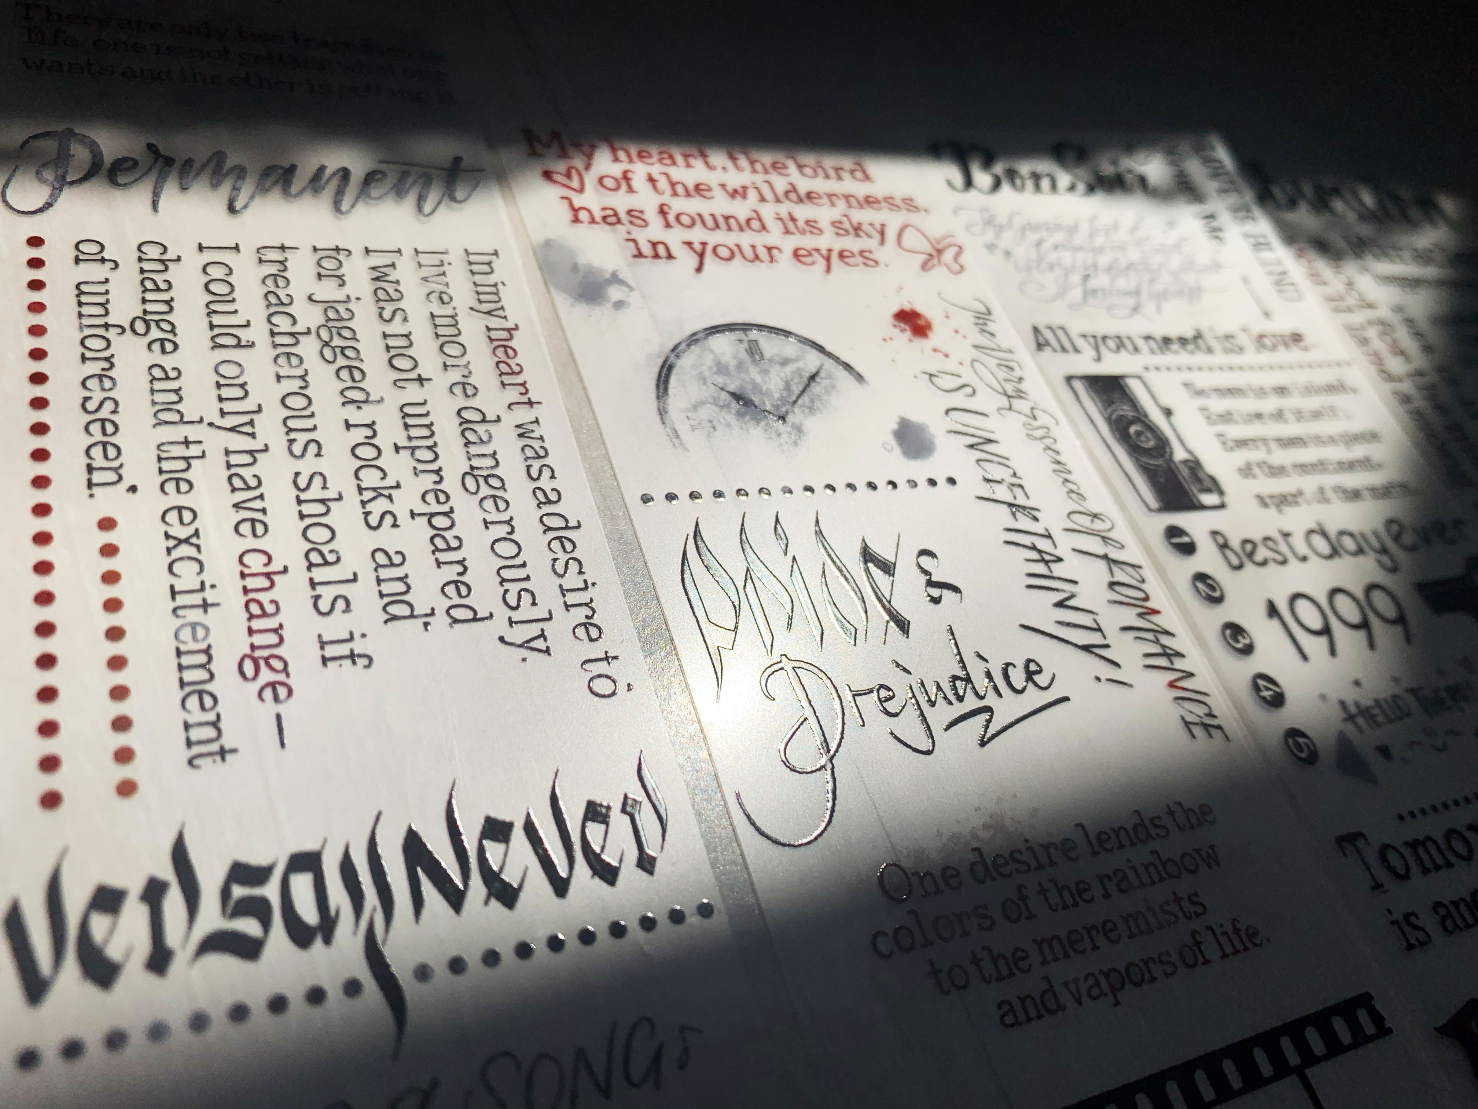 There are only two tragedies in
life, one is not getting what one
wants and the other is getting it
Permanent
In my heart was a desire to
live more dangerously.
I was not unprepared
for jagged rocks and
treacherous shoals if
I could only have change—
change and the excitement
of unforeseen.
ver say Never
a SONG
My heart, the bird
of the wilderness,
has found its sky
in your eyes.
The Very Essence Of ROMANCE
is UNCERTAINTY!
Pride
&
Prejudice
One desire lends the
colors of the rainbow
to the mere mists
and vapors of life.
All you need is love
No man is an island,
Entire of itself,
Every man is a piece
of the continent,
a part of the main.
1
2
3
4
5
Best day Ever
1999
Hello
Tomo
is an